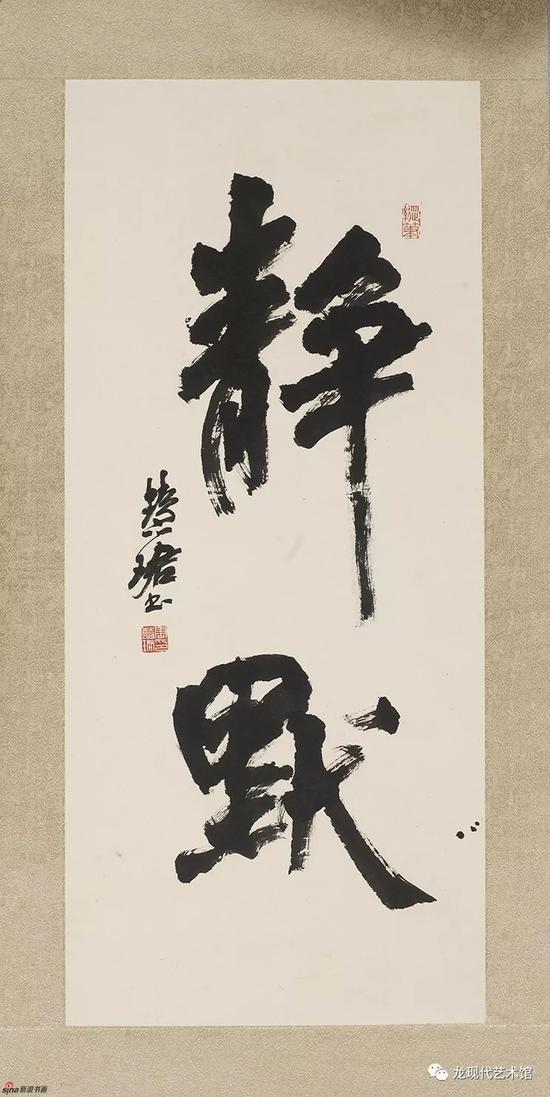 静
默
慧珺书
sina新浪书画
龙现代艺术馆